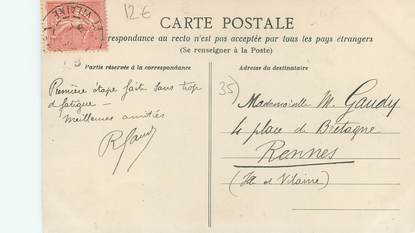 12€
CARTE POSTALE
correspondance au recto n'est pas acceptée par tous les pays étrangers
(Se renseigner à la Poste)
Partie réservée à la correspondance
Adresse du destinataire
Première étape faite sans trop
d fatigue —
meilleures amitiés
35)
Mademoiselle M. Gaudy
4 place de Bretagne
Rennes
(Ille et Vilaine)